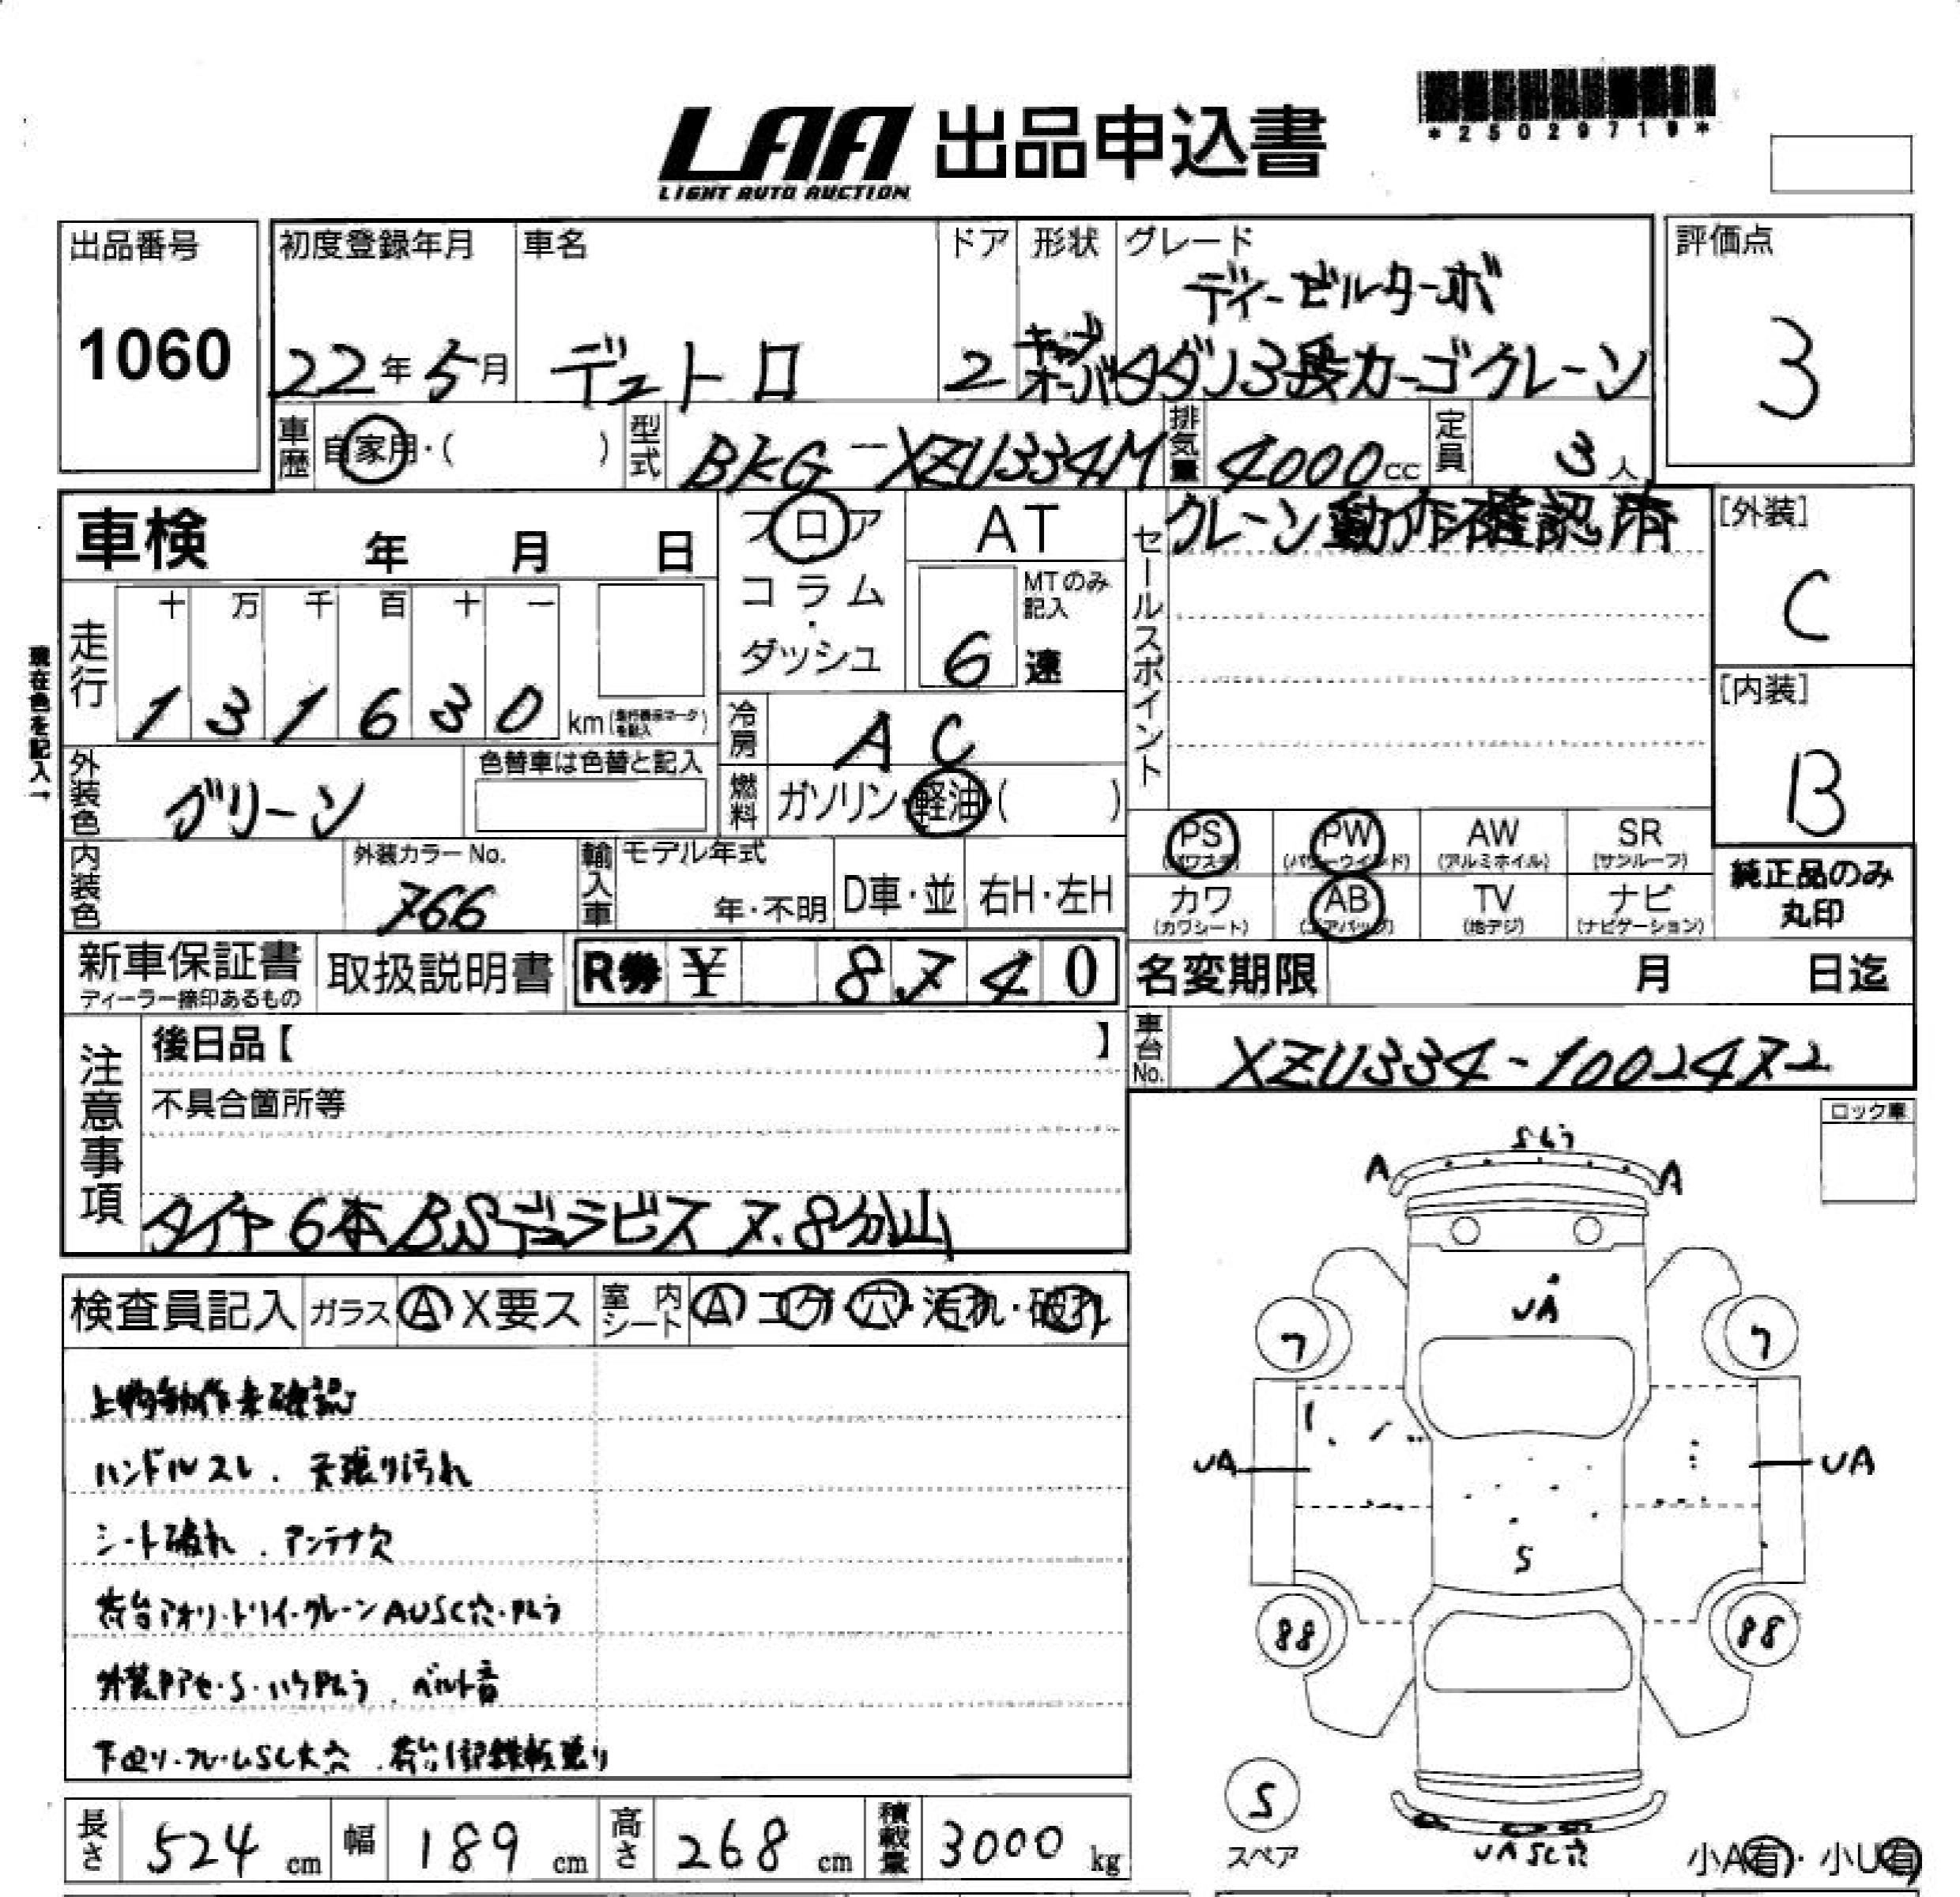 LAA 出品申込書
LIGHT AUTO AUCTION
*25029719*
出品番号
1060
初度登録年月
22年5月
車名
デュトロ
ドア
2
形状
キャブオーバ
グレード
ディーゼルターボ
タダノ3段カーゴクレーン
評価点
3
車歴 自家用・( )
型式 BKG-XZU334M
排気量 4000cc
定員 3人
車検 年 月 日
フロア
コラム・
ダッシュ
AT
MTのみ記入
6速
セールスポイント
クレーン動作確認済
[外装]
C
[内装]
B
現在色を記入→
走行 十 万 千 百 十 一
1 3 1 6 3 0 km
冷房 AC
燃料 ガソリン・軽油・( )
外装色 グリーン
色替車は色替と記入
内装色
外装カラーNo.
766
輸入車
モデル年式
年・不明
D車・並
右H・左H
PS PW AW SR
(パワステ) (パワーウインド) (アルミホイル) (サンルーフ)
カワ AB TV ナビ
(カワシート) (エアバッグ) (地デジ) (ナビゲーション)
純正品のみ
丸印
新車保証書
ディーラー捺印あるもの
取扱説明書
R券 ¥ 8,740
名変期限 月 日迄
車台No. XZU334-1002472
注意事項
後日品【 】
不具合箇所等
タイヤ6本BSデュラビス7.8分山
ロック車
検査員記入 ガラス A X要ス 室内シート A コゲ・穴・汚れ・破れ
上物動作未確認
ハンドルスレ、天張り汚れ
シート破れ、アンテナ欠
荷台アオリ・トリイ・クレーンAUSC穴・
ベルト音
下回り・フレームSC大穴、
A A
UA
7 7
UA UA
S
88 88
S
スペア
UASC穴
小A有・小U有
長さ 524cm
幅 189cm
高さ 268cm
積載量 3000kg